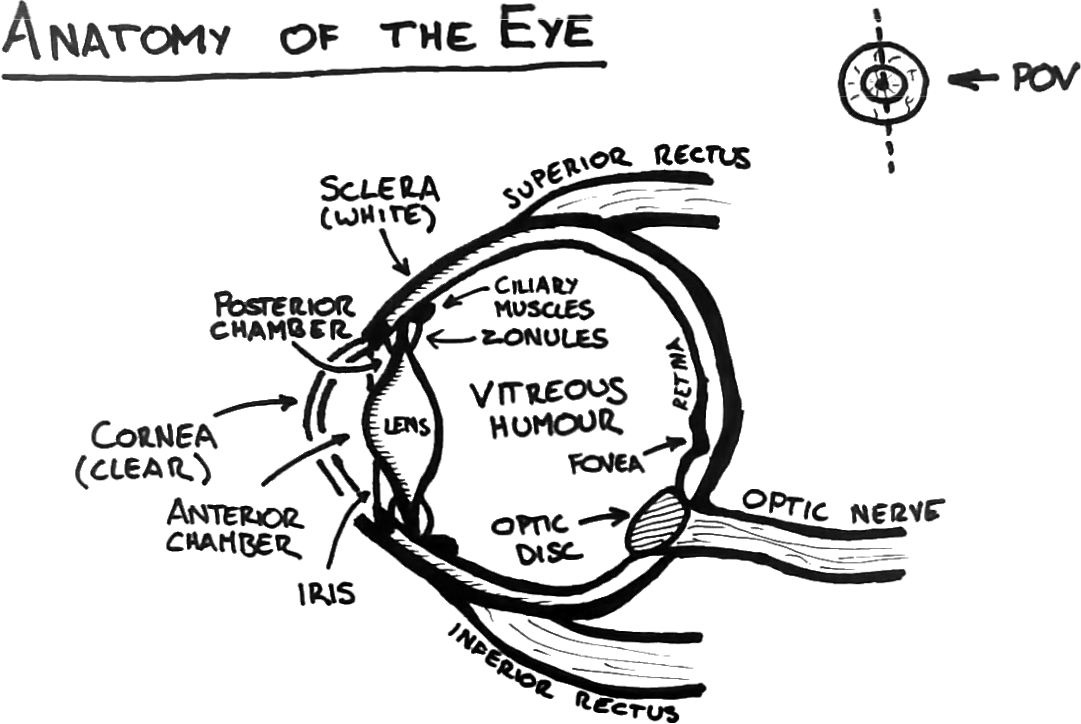 ANATOMY OF THE EYE
POV
SUPERIOR RECTUS
SCLERA
(WHITE)
CILIARY
MUSCLES
POSTERIOR
CHAMBER
ZONULES
RETINA
VITREOUS
HUMOUR
LENS
CORNEA
(CLEAR)
FOVEA
ANTERIOR
CHAMBER
OPTIC NERVE
OPTIC
DISC
IRIS
INFERIOR RECTUS